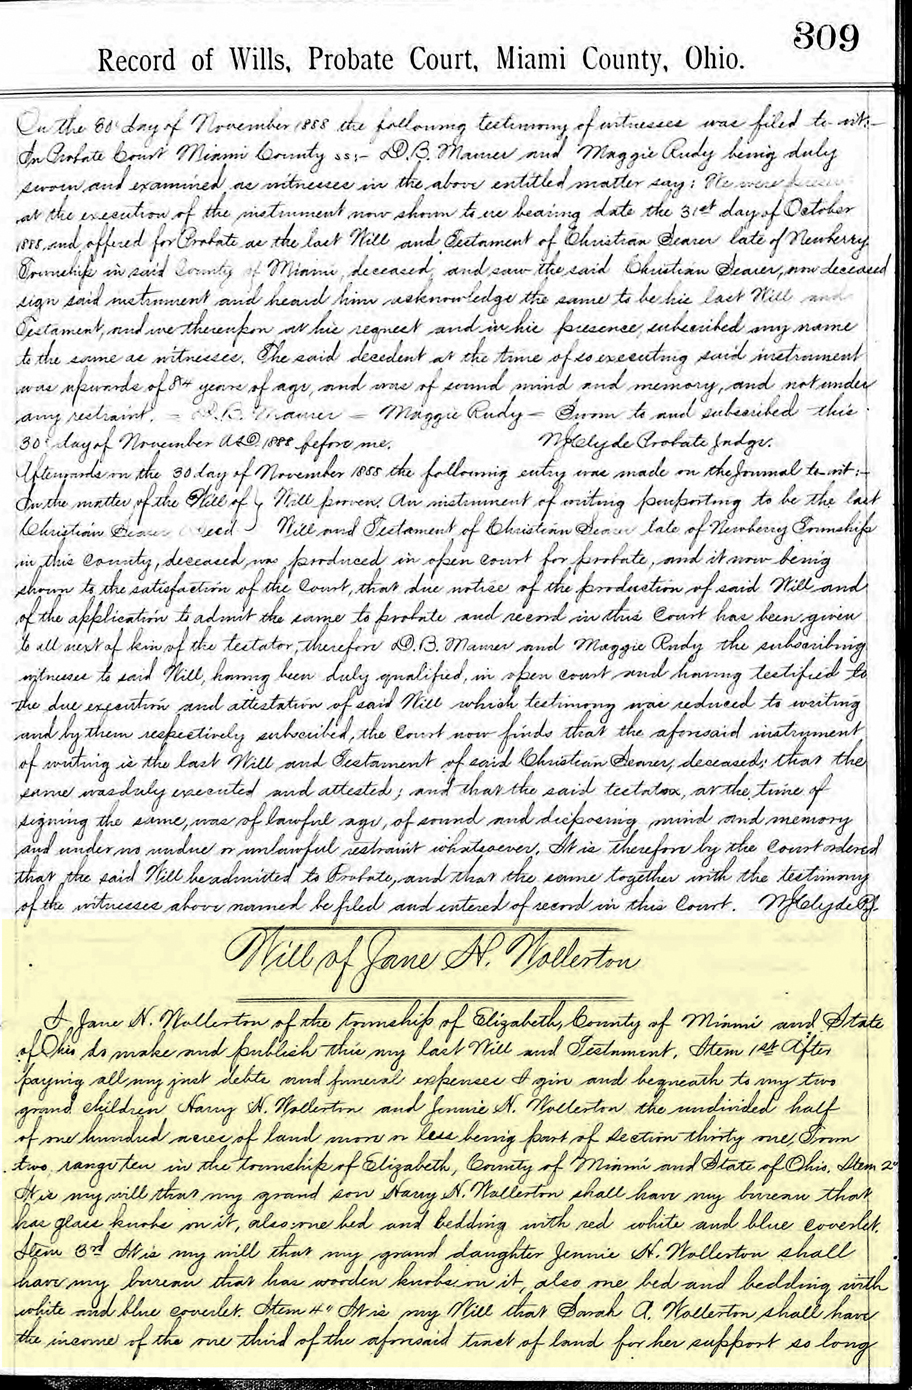 309
Record of Wills, Probate Court, Miami County, Ohio.
On the 30" day of November 1888 the following testimony of witnesses was filed to-wit:-
In Probate Court Miami County ss:- D.B. Maurer and Maggie Rudy being duly
sworn and examined as witnesses in the above entitled matter say: We were present
at the execution of the instrument now shown to us bearing date the 31st day of October
1888 and offered for Probate as the last Will and Testament of Christian Searer late of Newberry
Township in said County of Miami, deceased, and saw the said Christian Searer, now deceased
sign said instrument and heard him asknowledge the same to be his last Will and
Testament, and we thereupon at his request and in his presence, subscribed my name
to the same as witnesses. The said decedent at the time of so executing said instrument
was upwards of 84 years of age, and was of sound mind and memory, and not under
any restraint. = D.B. Maurer = Maggie Rudy = Sworn to and subscribed this
30" day of November A.D. 1888 before me. W.J. Clyde Probate Judge.
Afterwards on the 30 day of November 1888 the following entry was made on the Journal to-wit:-
In the matter of the Will of } Will proven. An instrument of writing purporting to be the last
Christian Searer Decd } Will and Testament of Christian Searer late of Newberry Township
in this County, deceased was produced in open court for probate, and it now being
shown to the satisfaction of the Court, that due notice of the production of said Will and
of the application to admit the same to probate and record in this Court has been given
to all next of kin of the testator, therefore D.B. Maurer and Maggie Rudy the subscribing
witnesses to said Will, having been duly qualified, in open court and having testified to
the due execution and attestation of said Will which testimony was reduced to writing
and by them respectively subscribed, the Court now finds that the aforesaid instrument
of writing is the last Will and Testament of said Christian Searer, deceased; that the
same was duly executed and attested; and that the said testator, at the time of
signing the same, was of lawful age, of sound and disposing mind and memory
and under no undue or unlawful restraint whatsoever. It is therefore by the Court ordered
that the said Will be admitted to Probate, and that the same together with the testimony
of the witnesses above named be filed and entered of record in this Court. W.J. Clyde P.J.
Will of Jane N. Wollerton
I Jane N. Wollerton of the township of Elizabeth, County of Miami and State
of Ohio do make and publish this my last Will and Testament. Item 1st After
paying all my just debts and funeral expenses I give and bequeath to my two
grand children Harry N. Wollerton and Jennie N. Wollerton the undivided half
of one hundred acres of land more or less being part of section thirty one, Town
two, range ten in the township of Elizabeth, County of Miami and State of Ohio. Item 2"
It is my will that my grand son Harry N. Wollerton shall have my bureau that
has glass knobs on it, also one bed and bedding with red white and blue coverlet.
Item 3rd It is my will that my grand daughter Jennie N. Wollerton shall
have my bureau that has wooden knobs on it, also one bed and bedding with
white and blue coverlet. Item 4" It is my Will that Sarah A. Wollerton shall have
the income of the one third of the aforesaid tract of land for her support so long